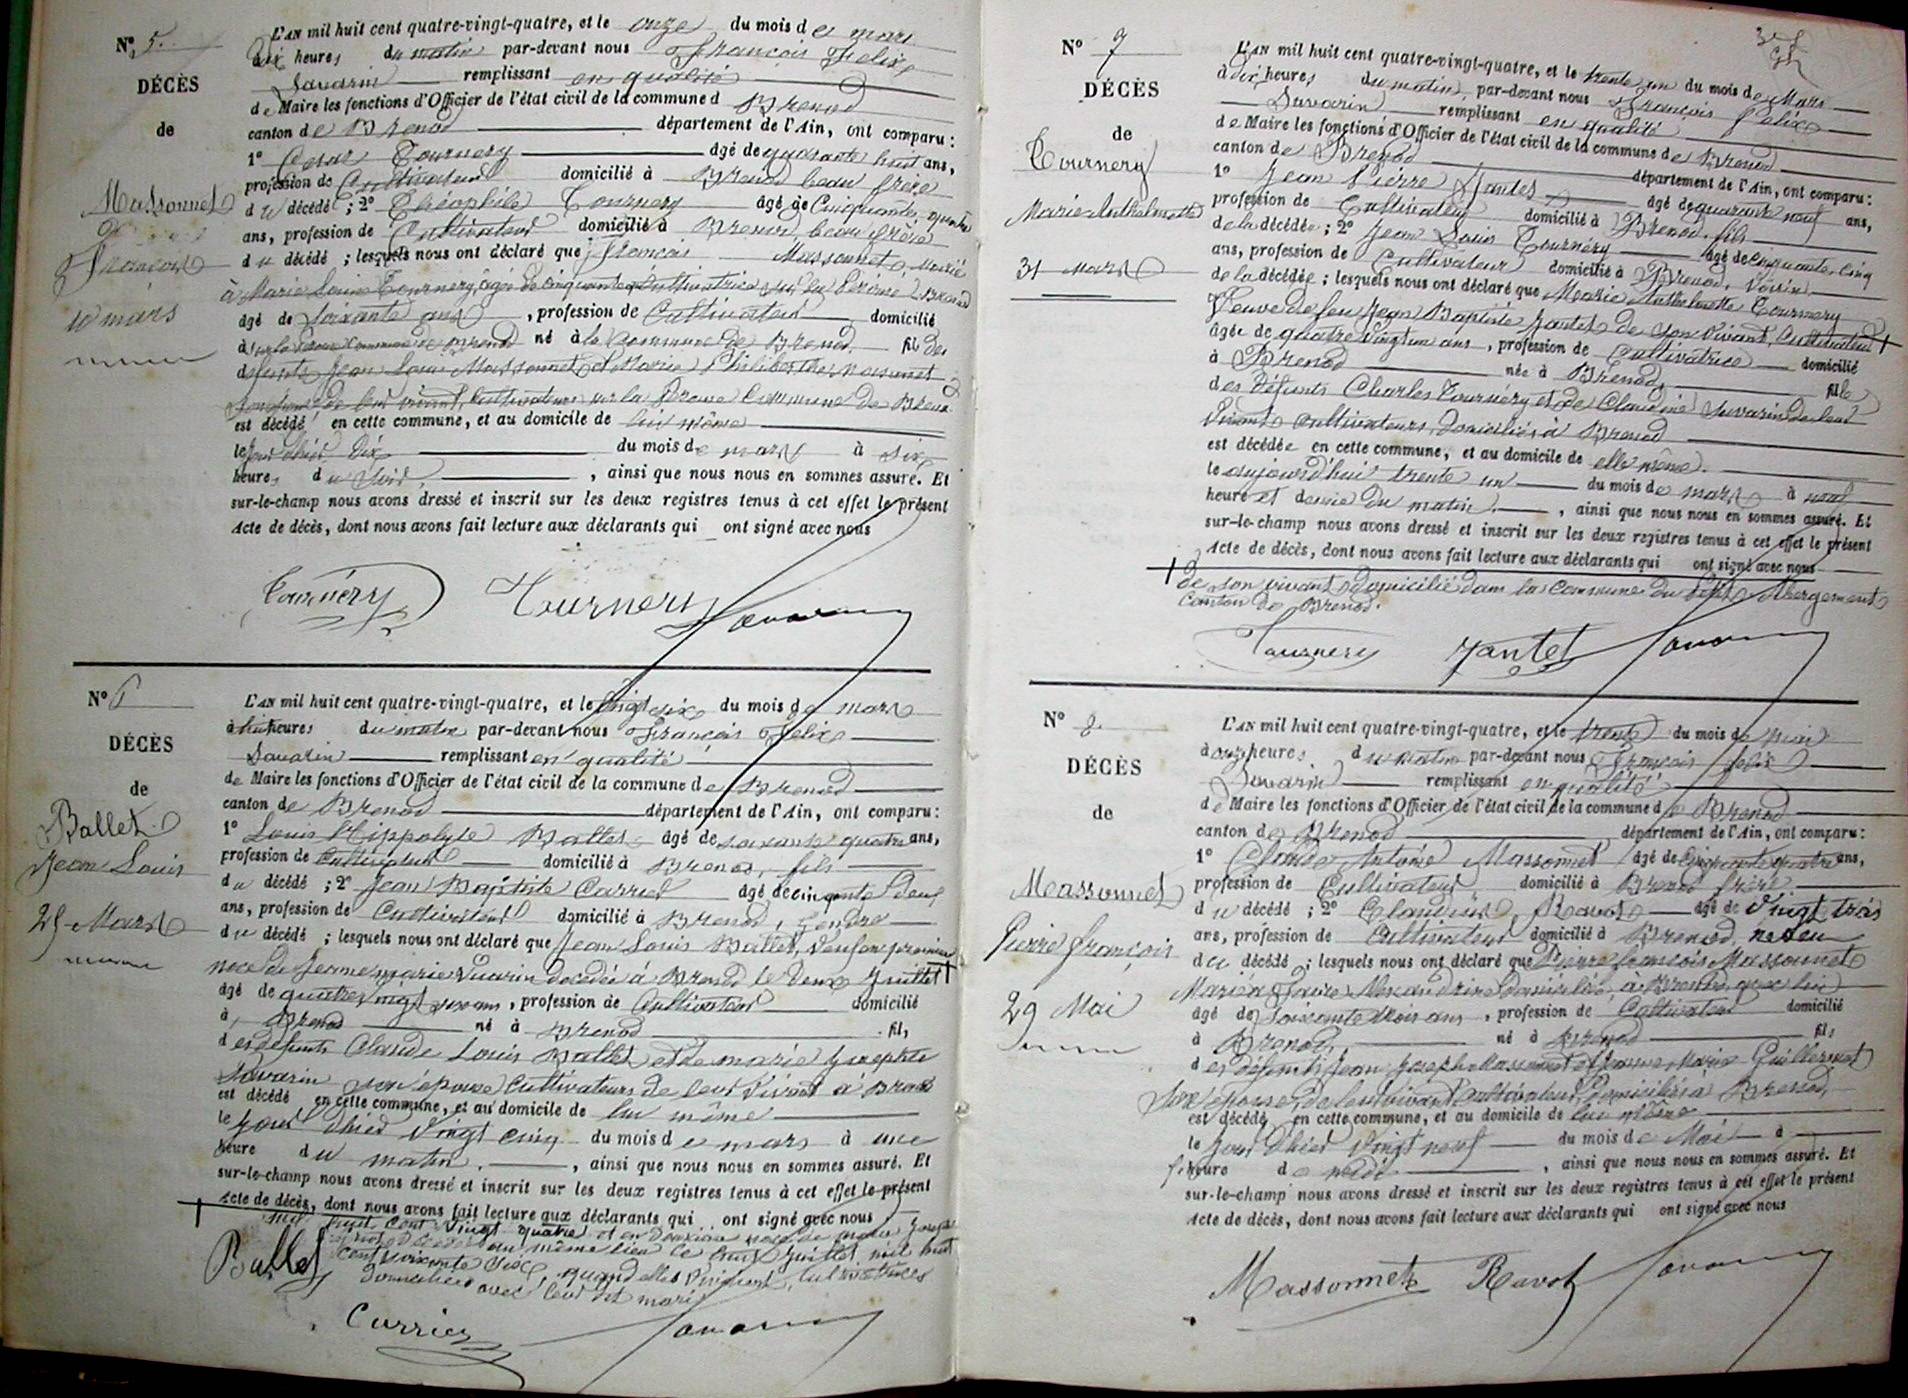 Nº 5.
DÉCÈS
de
Massonnet
François
10 mars
L'AN mil huit cent quatre-vingt-quatre, et le onze du mois de mars
à dix heures du matin par-devant nous François Felix
Savarin remplissant en qualité
de Maire les fonctions d'Officier de l'état civil de la commune d Brenod
canton de Brenod département de l'Ain, ont comparu :
1º César Tournery âgé de quarante huit ans,
profession de Cultivateur domicilié à Brenod beau frère
du décédé ; 2º Théophile Tournery âgé de Cinquante quatre
ans, profession de Cultivateur domicilié à Brenod beau frère
du décédé ; lesquels nous ont déclaré que françois Massonnet, marié
à Marie Louise Tournery, âgée de cinquante Cultivatrice sur la Brenod
âgé de Soixante ans, profession de Cultivateur domicilié
à sur la Commune de Brenod né à la Commune de Brenod fil des
défunts Jean Louis Massonnet et Marie Philiberthe Massonnet
de leur vivant, Cultivateurs sur la Commune de Brenod
est décédé en cette commune, et au domicile de lui même
le jour d'hier Dix du mois de mars à six
heures du Soir, ainsi que nous nous en sommes assuré. Et
sur-le-champ nous avons dressé et inscrit sur les deux registres tenus à cet effet le présent
Acte de décès, dont nous avons fait lecture aux déclarants qui ont signé avec nous
Tournéry Tournery Savarin
Nº 6
DÉCÈS
de
Ballet
Jean Louis
25 Mars
L'AN mil huit cent quatre-vingt-quatre, et le vingt six du mois de mars
à huit heures du matin par-devant nous François Felix
Savarin remplissant en qualité
de Maire les fonctions d'Officier de l'état civil de la commune de Brenod
canton de Brenod département de l'Ain, ont comparu :
1º Louis Hippolyte Ballet âgé de quatre ans,
profession de Cultivateur domicilié à Brenod, fils
du décédé ; 2º Jean Baptiste Carrier âgé de cinquante Deux
ans, profession de Cultivateur domicilié à Brenod, Gendre
du décédé ; lesquels nous ont déclaré que Jean Louis Ballet, veuf en première
noce de Jeanne marie Savarin décédée à Brenod le Deux Juillet †
âgé de quatre vingt ans, profession de Cultivateur domicilié
à Brenod né à Brenod fils
des défunts Claude Louis Ballet et de marie Josephte
Savarin son épouse Cultivateurs de leur vivant à Brenod
est décédé en cette commune, et au domicile de lui même
le jour d'hier Vingt cinq du mois de mars à une
heure du matin, ainsi que nous nous en sommes assuré. Et
sur-le-champ nous avons dressé et inscrit sur les deux registres tenus à cet effet le présent
Acte de décès, dont nous avons fait lecture aux déclarants qui ont signé avec nous
† mil huit cent vingt quatre et en Deuxième noce de marie
au même lieu le Juillet mil huit
cent soixante six, quand elles vivaient, Cultivatrices
domiciliées avec leur dit mari
Ballet
Carrier Savarin
Nº 7
DÉCÈS
de
Tournery
Marie Anthelmette
31 mars
L'AN mil huit cent quatre-vingt-quatre, et le trente un du mois de Mars
à dix heures du matin, par-devant nous François felix
Savarin remplissant en qualité
de Maire les fonctions d'Officier de l'état civil de la commune de Brenod
canton de Brenod département de l'Ain, ont comparu :
1º Jean Pierre Jantet âgé de quarante neuf ans,
profession de Cultivateur domicilié à Brenod. fils
de la décédée ; 2º Jean Louis Tournery âgé de Cinquante cinq
ans, profession de Cultivateur domicilié à Brenod, Voisin
de la décédée ; lesquels nous ont déclaré que Marie Anthelmette Tournery
Veuve de feu Jean Baptiste Jantet de son vivant, Cultivateur †
âgée de quatre vingt un ans, profession de Cultivatrice domicilié
à Brenod née à Brenod, fille
des Défunts Charles Tournéry et de Claudine Savarin de leur
vivant cultivateurs, domiciliés à Brenod
est décédée en cette commune, et au domicile de elle même.
le aujourd'hui trente un du mois de mars à neuf
heure et demie du matin, ainsi que nous nous en sommes assuré. Et
sur-le-champ nous avons dressé et inscrit sur les deux registres tenus à cet effet le présent
Acte de décès, dont nous avons fait lecture aux déclarants qui ont signé avec nous
† de son vivant domicilié dans la commune du Petit Abergement
canton de Brenod.
Tournery Jantet Savarin
Nº 8.
DÉCÈS
de
Massonnet
Pierre françois
29 Mai
L'AN mil huit cent quatre-vingt-quatre, et le trente du mois de mai
à onze heures du matin par-devant nous François felix
Savarin remplissant en qualité
de Maire les fonctions d'Officier de l'état civil de la commune de Brenod
canton de Brenod département de l'Ain, ont comparu :
1º Claude Antoine Massonnet âgé de Cinquante quatre ans,
profession de Cultivateur domicilié à Brenod frère
du décédé ; 2º Claudius Ravot âgé de Vingt trois
ans, profession de Cultivateur domicilié à Brenod, neveu
du décédé ; lesquels nous ont déclaré que Pierre françois Massonnet
Marié à Alexandrine domiciliée, à Brenod avec lui
âgé de Soixante trois ans, profession de Cultivateur domicilié
à Brenod, né à Brenod fils
des défunts Jean Joseph Massonnet et Jeanne Marie Guillermet
Son épouse, de leur vivant Cultivateurs, Domiciliés à Brenod,
est décédé en cette commune, et au domicile de lui même
le jour d'hier Vingt neuf du mois de Mai à
heure de midi, ainsi que nous nous en sommes assuré. Et
sur-le-champ nous avons dressé et inscrit sur les deux registres tenus à cet effet le présent
Acte de décès, dont nous avons fait lecture aux déclarants qui ont signé avec nous
Massonnet Ravot Savarin